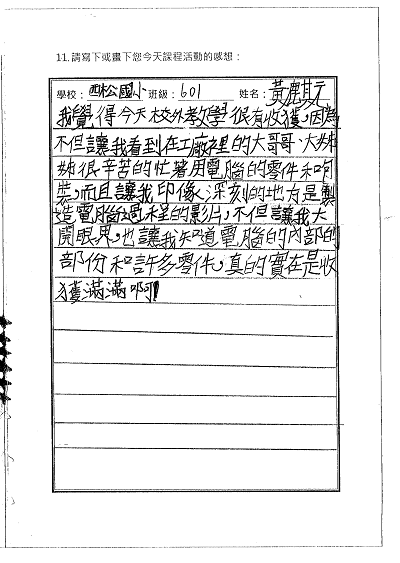 11.請寫下或畫下您今天課程活動的感想：
學校：西松國小班級：601 姓名：黃麒元
我覺得今天校外教學很有收獲，因為
不但讓我看到在工廠裡的大哥哥、大姊
姊很辛苦的忙著用電腦的零件和包
裝，而且讓我印像深刻的地方是製
造電腦過程的影片，不但讓我大
開眼界，也讓我知道電腦的內部的
部份和許多零件，真的實在是收
獲滿滿啊！